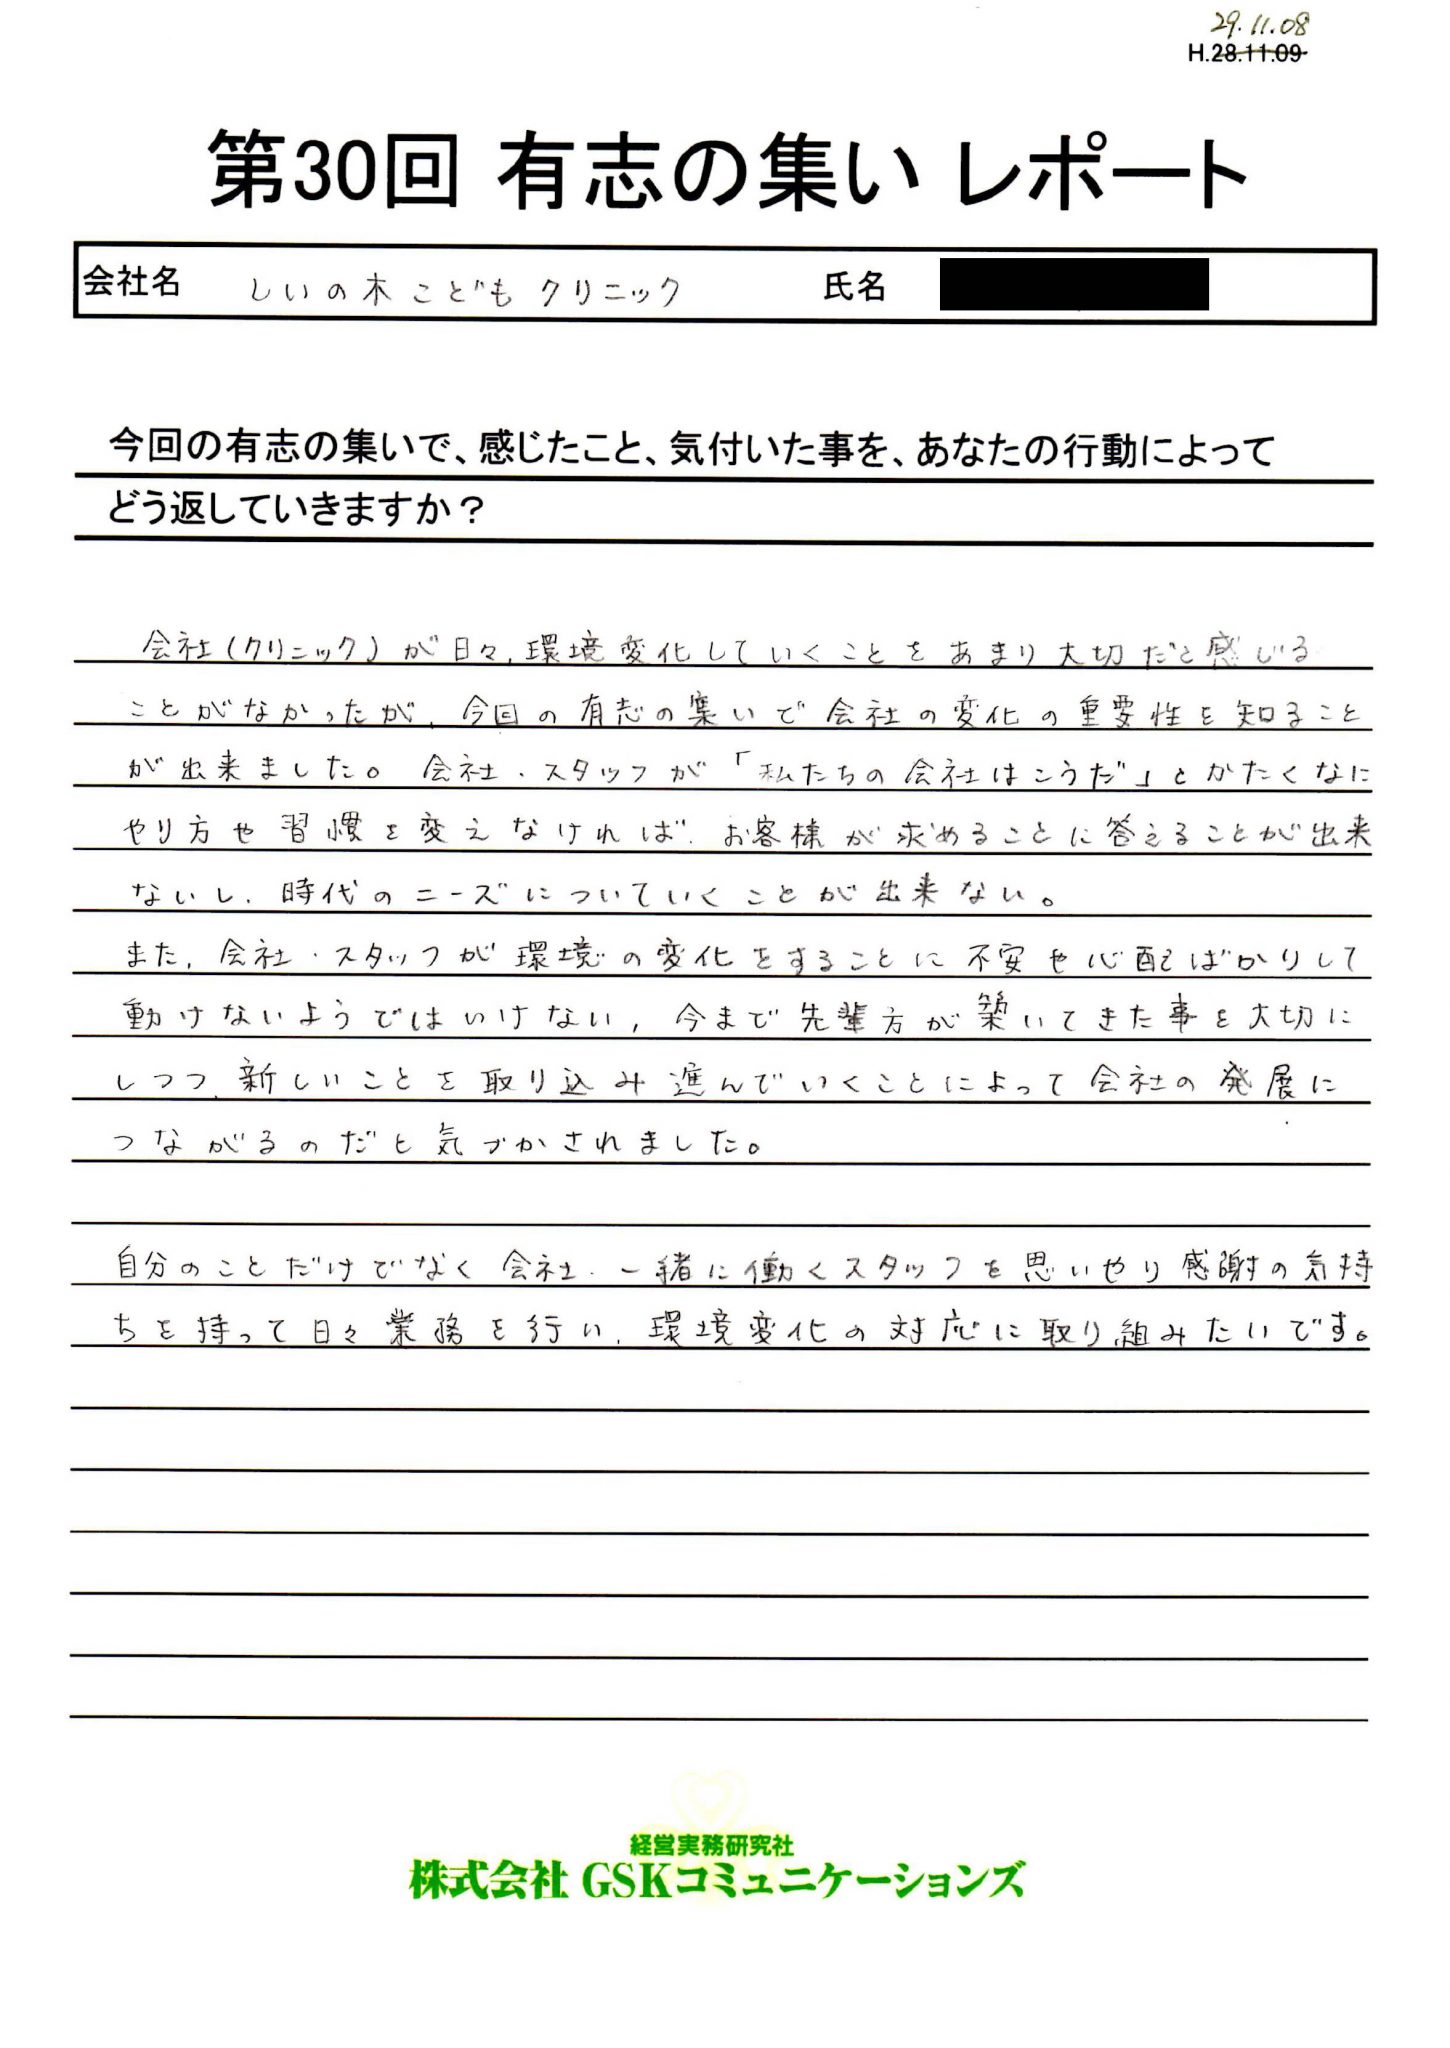 29.11.08
H.28.11.09
第30回 有志の集い レポート
会社名 しいの木こどもクリニック 氏名
今回の有志の集いで、感じたこと、気付いた事を、あなたの行動によって
どう返していきますか？
会社(クリニック)が日々、環境変化していくことをあまり大切だと感じる
ことがなかったが、今回の有志の集いで会社の変化の重要性を知ること
が出来ました。会社・スタッフが「私たちの会社はこうだ」とかたくなに
やり方や習慣を変えなければ、お客様が求めることに答えることが出来
ないし、時代のニーズについていくことが出来ない。
また、会社・スタッフが環境の変化をすることに不安や心配ばかりして
動けないようではいけない、今まで先輩方が築いてきた事を大切に
しつつ、新しいことを取り込み進んでいくことによって会社の発展に
つながるのだと気づかされました。
自分のことだけでなく会社・一緒に働くスタッフを思いやり感謝の気持
ちを持って日々業務を行い、環境変化の対応に取り組みたいです。
経営実務研究社
株式会社 GSKコミュニケーションズ